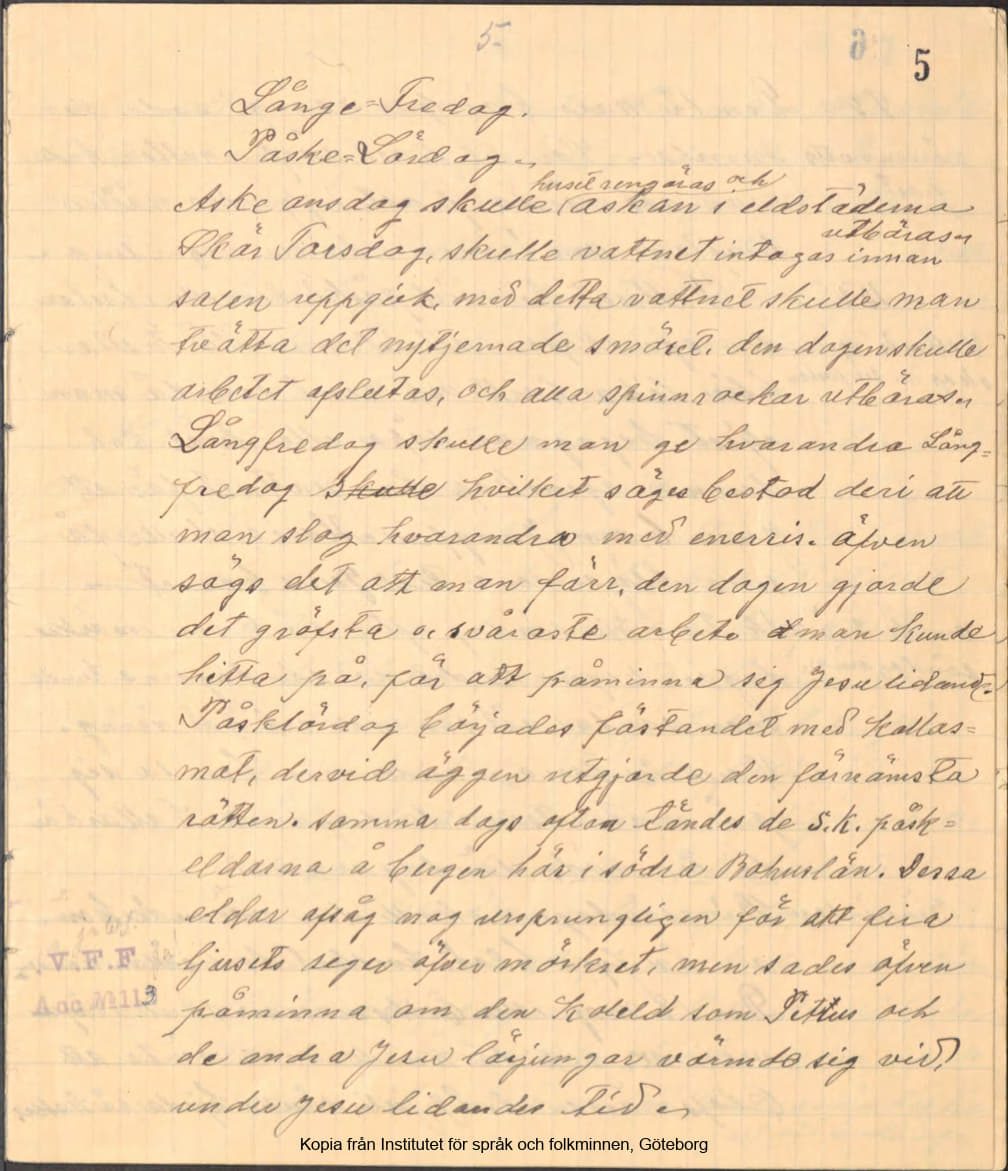 5-
5
Långe=Fredag.
Påske=Lördag.
husit rengöras och
Aske onsdag skulle askan i eldstäderna
utbäras
Skär Torsdag, skulle vattnet intagas innan
solen uppgick, med detta vattnet skulle man
tvätta det nytjernade smöret. den dagen skulle
arbetet afslutas, och alla spinnrockar utbäras
Långfredag skulle man ge hvarandra Lång=
fredag skulle hvilket säges bestod deri att
man slog hvarandra med enerris. äfven
sägs det att man förr, den dagen gjorde
det gröfsta o. svåraste arbete man kunde
hitta på, för att påminna sig Jesu lidande.
Påsklördag börjades föstandet med kallas=
mat, dervid äggen utgjorde den förnämsta
rätten. samma dags afton tändes de s.k. påsk=
eldarna å bergen här i södra Bohuslän. Dessa
eldar afsåg nog ursprungligen för att fira
ljusets seger öfver mörkret, men sades äfven
påminna om den koleld som Pettus och
de andra Jesu lärjungar värmde sig vid,
under Jesu lidandes tid.
V.F.F
Acc № 113
Kopia från Institutet för språk och folkminnen, Göteborg